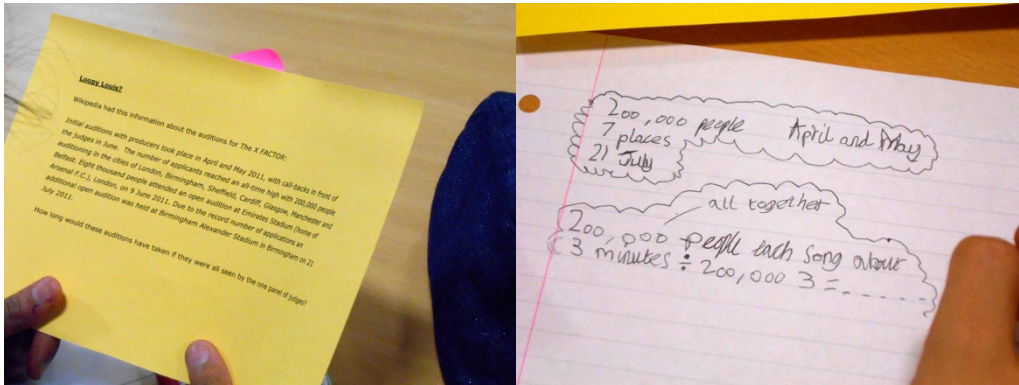 Loopy Louis?
Wikipedia had this information about the auditions for The X FACTOR:
Initial auditions with producers took place in April and May 2011, with call-backs in front of
the judges in June. The number of applicants reached an all-time high with 200,000 people
auditioning in the cities of London, Birmingham, Sheffield, Cardiff, Glasgow, Manchester and
Belfast. Eight thousand people attended an open audition at Emirates Stadium (home of
Arsenal F.C.), London, on 9 June 2011. Due to the record number of applications an
additional open audition was held at Birmingham Alexander Stadium in Birmingham on 21
July 2011.
How long would these auditions have taken if they were all seen by the one panel of judges?
200,000 people April and May
7 places
21 July
all together
200,000 people each song about
3 minutes ÷ 200,000 3 = . - - - - -